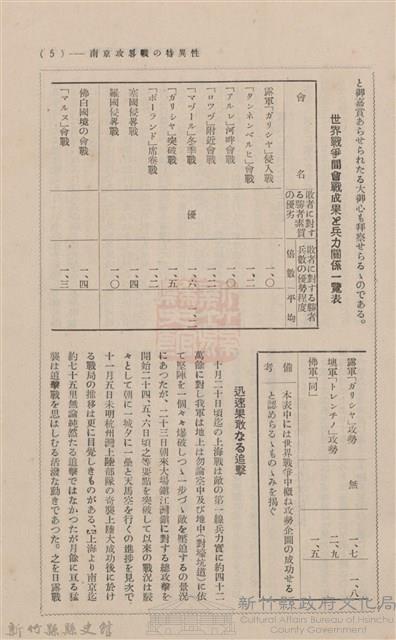 南京攻略戰の特異性——（5）
と御嘉賞あらせられたる大御心も拜察せらるゝのである。
世界戰爭間會戰成果と兵力關係一覽表
會 名
敗者に對する勝者素質の優劣
敗者に對する勝者兵數の優勢程度
倍數
平均
露軍「ガリシヤ」侵入戰 一、〇
「タンネンベルヒ」會戰 一、二
「アルレ」河畔會戰 一、〇
「ロッヴ」附近會戰 一、二
「マヅール」冬季戰 優 一、六 一、三
「ガリシヤ」突破戰 一、五
「ポーランド」席卷戰 一、二
塞國侵畧戰 一、四
羅國侵畧戰 一、〇
佛白國境の會戰 一、四
「マルヌ」會戰 一、三
露軍「ガリシヤ」攻勢 無 一、七 一、八
墺軍「トレンチノ」攻勢 二、九
佛軍「同」 一、五
備考 本表中には世界戰爭中概ね攻勢企圖の成功せる
と認めらるゝものゝみを揭ぐ
迅速果敢なる追擊
十月二十日頃迄の上海戰は敵の第一線兵力實に約四十二
萬餘に對し我軍は地上は勿論空中及び地中（對壕坑道）に依
て堅陣を一個々々爆破しつゝ一步づゝ敵を壓迫するの景況
にあつたが、二十三日朝來大場鎭江灣鎭に對する總攻擊を
開始二十四、五、六日頃之等要點を突破して以來の戰況は嚴
々として朝に一城夕に一壘と天馬空を行くの進捗を見次で
十一月五日未明杭州灣上陸部隊の奇襲上陸大成功後に於け
る戰局の推移は更に目覺しきものがある、上海より南京迄
約七十五里無論純然たる追擊ではなかつたが月餘に亘る猛
襲は追擊戰を思はしむる活潑な動きであつた。之を日露戰
新竹縣縣史館
新竹縣政府文化局
Cultural Affairs Bureau of Hsinchu
County Government